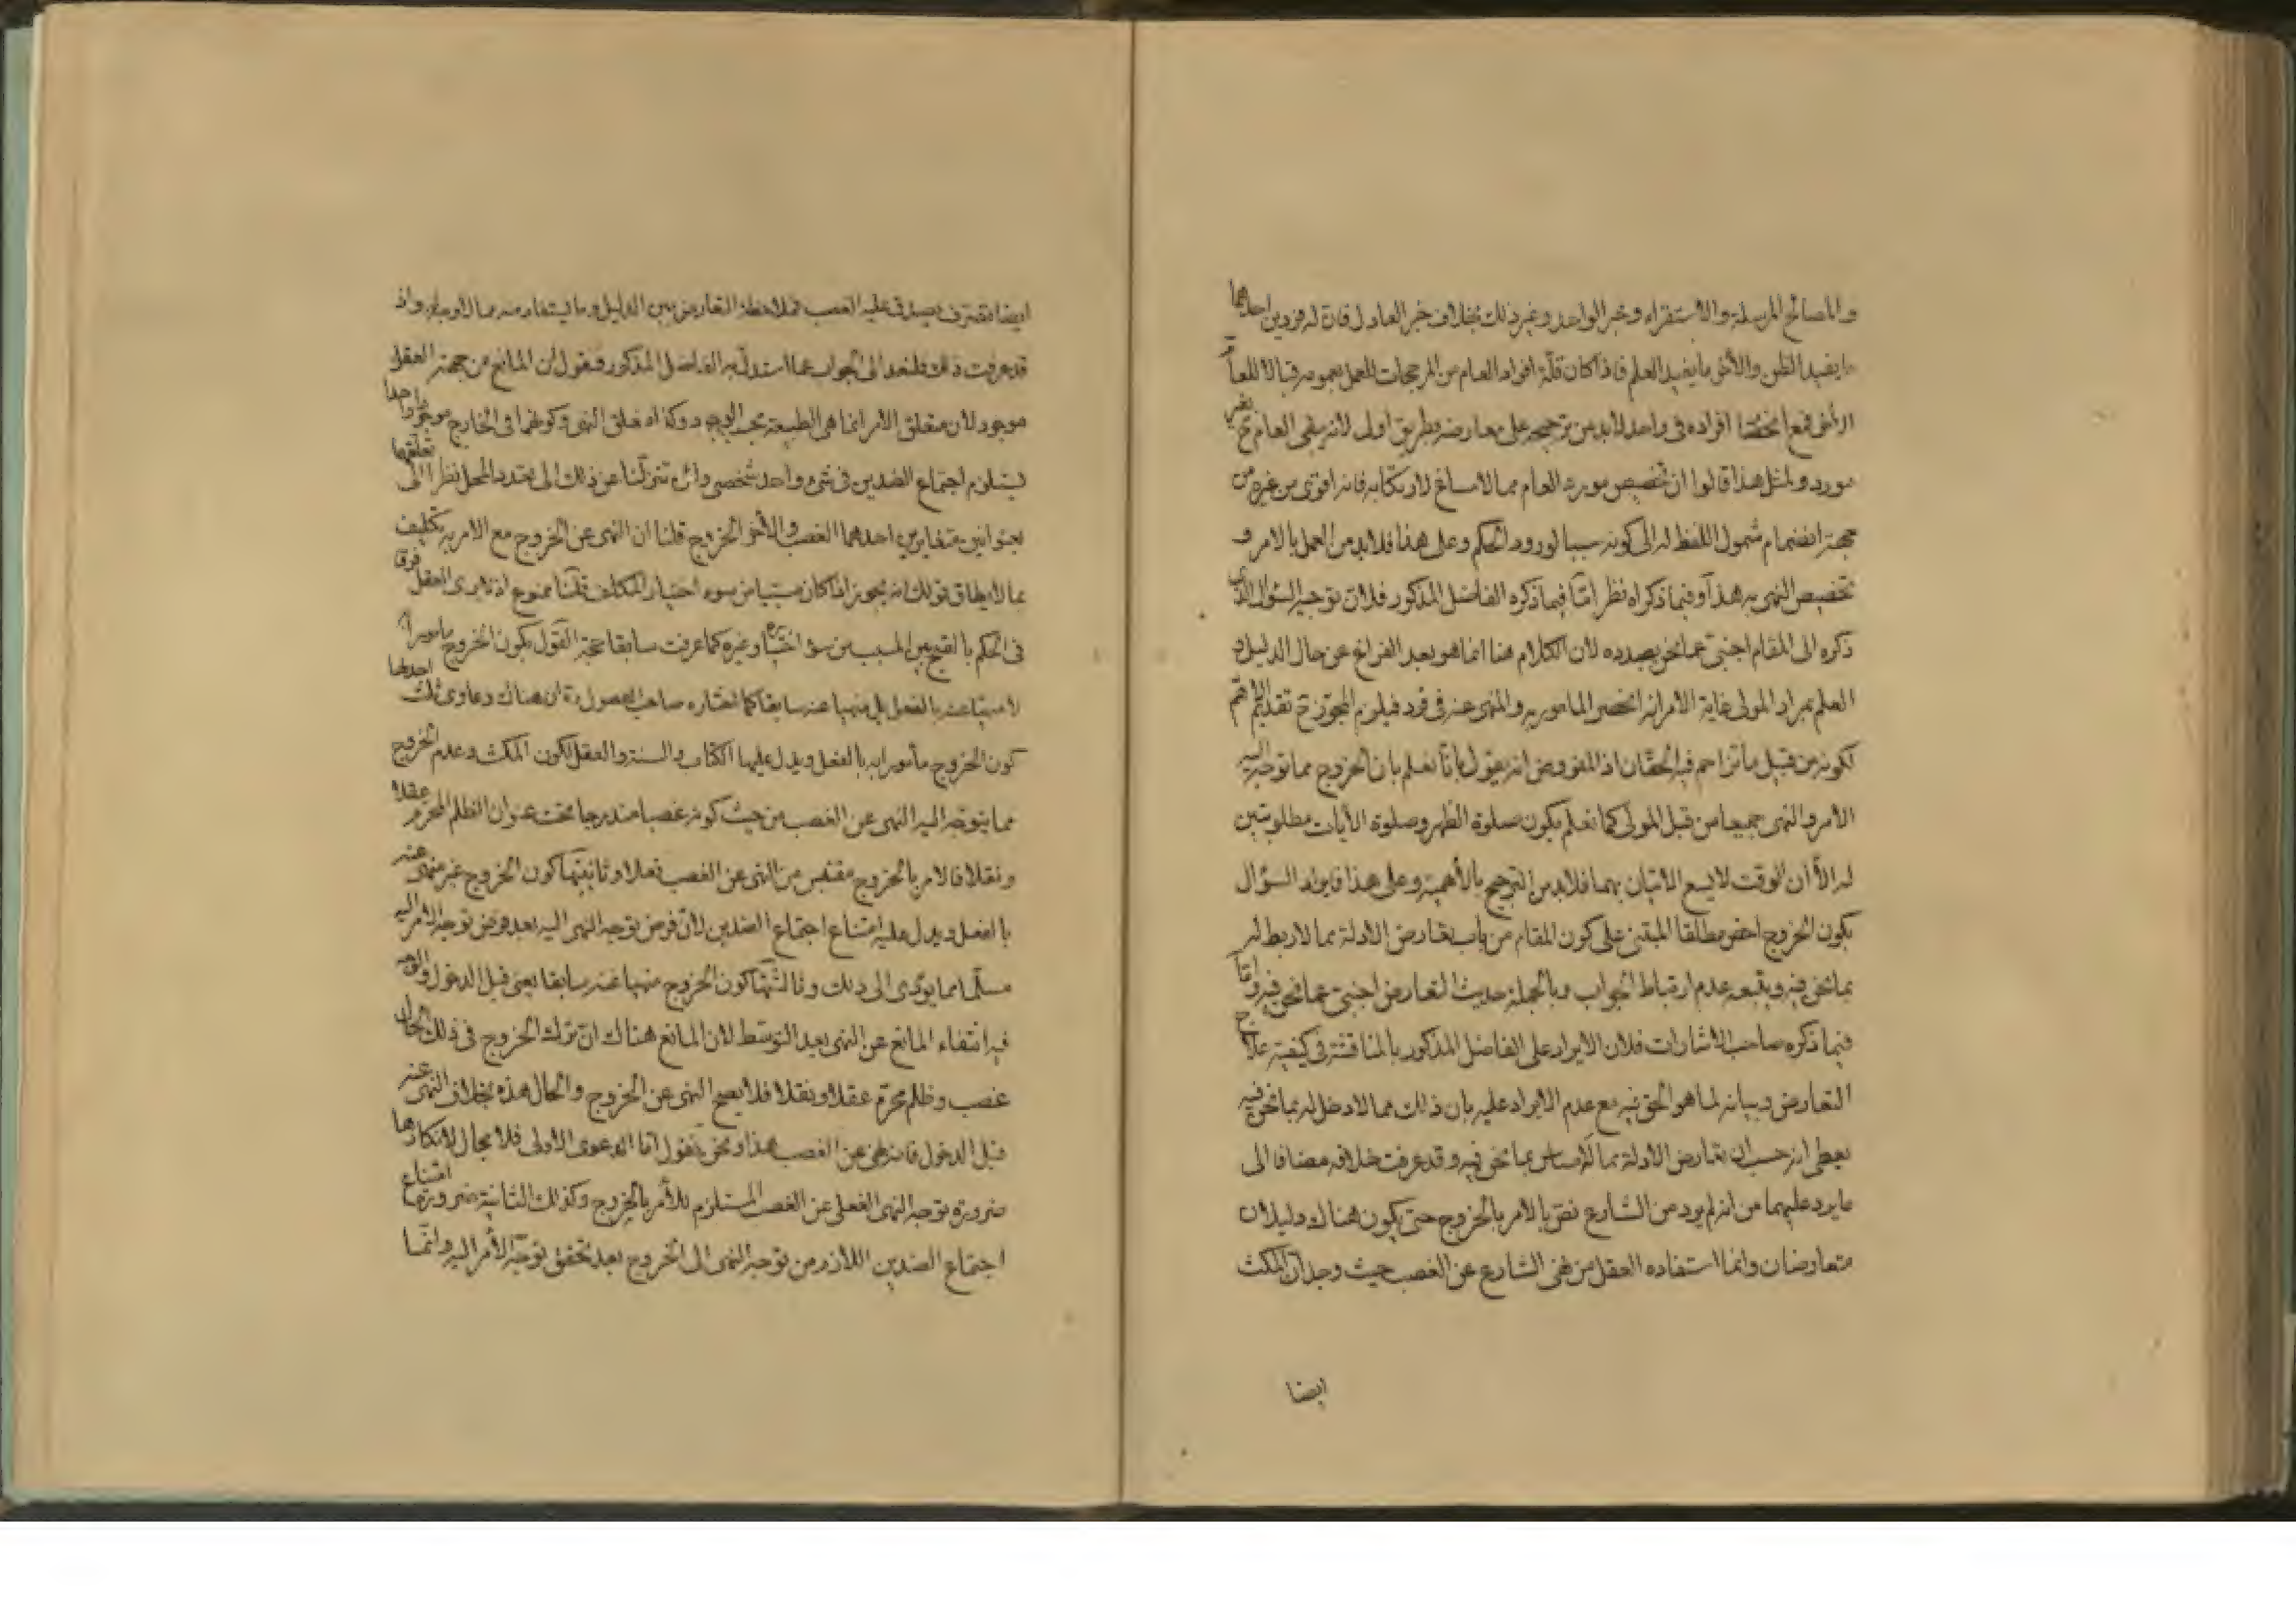 والمصالح المرسلة والاستقراء وخبر الواحد وغير ذلك بخلاف خبر العادل فان له فردين احدهما
ما يفيد الظن والاخر ما يفيد العلم فاذا كان قلة افراد العام من المرجحات للعمل بعمومه قبالا للعام
الاخر فمع انحصار افراده فى واحد لابد من ترجيحه على معارضه بطريق اولى لانه يبقى العام ح بغير
مورد ولمثل هذا قالوا ان تخصيص مورد العام مما لا مساغ لارتكابه فانه اقوى من غيره من
جهة انضمام شمول اللفظ له الى كونه سببا لورود الحكم وعلى هذا فلابد من العمل بالامر و
تخصيص النهى به هذا وفيما ذكراه نظر امّا فيما ذكره الفاضل المذكور فلان توجيه السؤال الذى
ذكره الى المقام اجنبى عما نحن بصدده لان الكلام هنا انما هو بعد الفراغ عن حال الدليل و
العلم بمراد المولى غاية الامر انه انحصر المامور به والمنهى عنه فى فرد فيلزم المجوز ح تقديم الاهم
لكونه من قبيل ما تزاحم فيه الحقان اذ المفروض انه يقول بانا نعلم بان الخروج مما توجه اليه
الامر والنهى جميعا من قبل المولى كما نعلم بكون صلوة الظهر وصلوة الايات مطلوبتين
له الا أن الوقت لا يسع الاتيان بهما فلابد من الترجيح بالأهمية وعلى هذا فايراد السؤال
بكون الخروج اخص مطلقا المبتنى على كون المقام من باب تعارض الادلة مما لا ربط له
بما نحن فيه ويتبعه عدم ارتباط الجواب وبالجملة حديث التعارض اجنبى عما نحن فيه وامّا
فيما ذكره صاحب الاشارات فلان الايراد على الفاضل المذكور بالمناقشة فى كيفية علاج
التعارض وبيانه لما هو الحق فيه مع عدم الايراد عليه بان ذلك مما لا دخل له بما نحن فيه
يعطى انه حسب ان تعارض الادلة مما له مساس بما نحن فيه وقد عرفت خلافه مضافا الى
ما يرد عليهما من انه لم يرد من الشارع نص بالامر بالخروج حتى يكون هناك دليلان
متعارضان وانما استفاده العقل من نهى الشارع عن الغصب حيث وجد ان المكث
ايضا
ايضا تصرف يصدق عليه الغصب فملاحظة التعارض بين الدليل وما يستفاد منه مما لا وجه له واذ
قد عرفت ذلك فلنعد الى الجواب عما استدل به الفاضل المذكور فنقول ان المانع من جهة العقل
موجود لان متعلق الامر انما هى الطبيعة بحسب الوجود وكذا متعلق النهى وكونهما فى الخارج موجودا واحدا
يستلزم اجتماع الضدين فى شىء واحد شخصى وان تنزلنا عن ذلك الى تعدد المحل نظرا الى تعلقهما
بعنوانين متغايرين احدهما الغصب والاخر الخروج قلنا ان النهى عن الخروج مع الامر به تكليف
بما لا يطاق قولك انه يجوز اذا كان مسببا من سوء اختيار المكلف قلنا ممنوع اذ لا يرى العقل فرق
فى الحكم بالقبح بين المسبب من سوء اختياره وغيره كما عرفت سابقا حجة القول بكون الخروج مامورا به
لا منهيا عنه بالفعل بل منهيا عنه سابقا كما اختاره صاحب الفصول ره ان هناك دعاوى ثلث احدها
كون الخروج مأمورا به بالفعل ويدل عليها الكتاب والسنة والعقل لكون المكث وعدم الخروج
مما يتوجه اليه النهى عن الغصب من حيث كونه غصبا مندرجا تحت عنوان الظلم المحرم عقلا
ونقلا فالامر بالخروج مقتبس من النهى عن الغصب فعلا وثانيتها كون الخروج غير منهى عنه
بالفعل ويدل عليه امتناع اجتماع الضدين لان فرض توجه النهى اليه بعد فرض توجه الامر اليه
مسلما مما يؤدى الى ذلك وثالثتها كون الخروج منهيا عنه سابقا يعنى قبل الدخول والوجه
فيه انتفاء المانع عن النهى بعد التوسط لان المانع هناك ان ترك الخروج فى ذلك الحال
غصب وظلم محرم عقلا ونقلا فلا يصح النهى عن الخروج والحال هذه بخلاف النهى عنه
قبل الدخول فانه نهى عن الغصب هذا ونحن نقول امّا الدعوى الاولى فلا مجال لانكارها
ضرورة توجه النهى الفعلى عن الغصب المستلزم للأمر بالخروج وكذلك الثانية ضرورة امتناع
اجتماع الضدين اللازم من توجه النهى الى الخروج بعد تحقق توجه الأمر اليه وانما